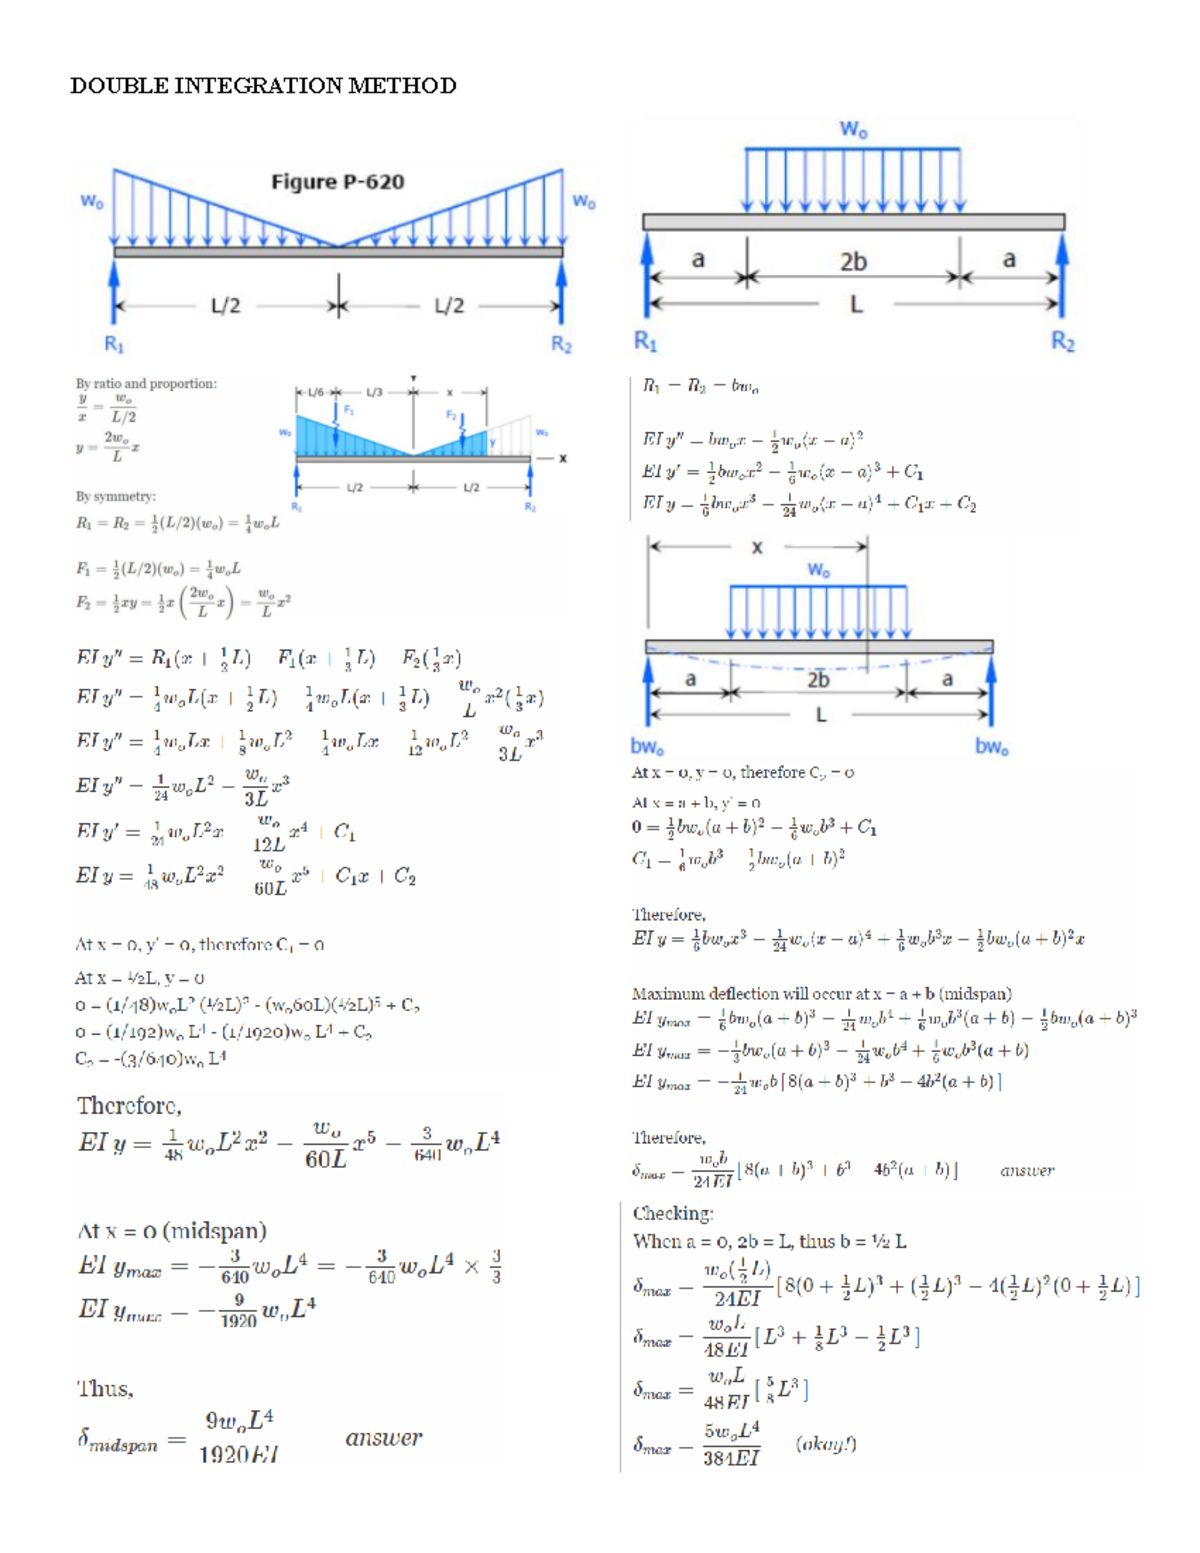 DOUBLE INTEGRATION METHOD
Figure P-620
wₒ
wₒ
L/2
L/2
R₁
R₂
By ratio and proportion:
y/x = wₒ/(L/2)
y = (2wₒ/L)x
L/6
L/3
x
F₁
F₂
wₒ
y
wₒ
x
L/2
L/2
R₁
R₂
By symmetry:
R₁ = R₂ = ½(L/2)(wₒ) = ¼wₒL
F₁ = ½(L/2)(wₒ) = ¼wₒL
F₂ = ½xy = ½x(2wₒ/L x) = wₒ/L x²
EI y″ = R₁(x + L) F₁(x + ⅓L) F₂(⅓x)
EI y″ = ¼wₒL(x + ½L) ¼wₒL(x + ⅓L) wₒ/L x²(⅓x)
EI y″ = ¼wₒLx + ⅛wₒL² ¼wₒLx 1/12 wₒL² wₒ/3L x³
EI y″ = 1/24 wₒL² − wₒ/3L x³
EI y′ = 1/24 wₒL²x wₒ/12L x⁴ + C₁
EI y = 1/48 wₒL²x² wₒ/60L x⁵ + C₁x + C₂
At x = 0, y' = 0, therefore C₁ = 0
At x = ½L, y = 0
0 = (1/48)wₒL² (½L)² - (wₒ60L)(½L)⁵ + C₂
0 = (1/192)wₒ L⁴ - (1/1920)wₒ L⁴ + C₂
C₂ = -(3/640)wₒ L⁴
Therefore,
EI y = 1/48 wₒL²x² − wₒ/60L x⁵ − 3/640 wₒL⁴
At x = 0 (midspan)
EI yₘₐₓ = −3/640 wₒL⁴ = −3/640 wₒL⁴ × 3/3
EI yₘₐₓ = −9/1920 wₒL⁴
Thus,
δmidspan = 9wₒL⁴/1920EI answer
wₒ
a
2b
a
L
R₁
R₂
R₁ = R₂ = bwₒ
EI y″ = bwₒx − ½wₒ⟨x − a⟩²
EI y′ = ½bwₒx² − 1/6 wₒ⟨x − a⟩³ + C₁
EI y = 1/6 bwₒx³ − 1/24 wₒ⟨x − a⟩⁴ + C₁x + C₂
x
wₒ
a
2b
a
L
bwₒ
bwₒ
At x = 0, y = 0, therefore C₂ = 0
At x = a + b, y' = 0
0 = ½bwₒ(a + b)² − 1/6 wₒb³ + C₁
C₁ = 1/6 wₒb³ ½bwₒ(a + b)²
Therefore,
EI y = 1/6 bwₒx³ − 1/24 wₒ⟨x − a⟩⁴ + 1/6 wₒb³x − ½bwₒ(a + b)²x
Maximum deflection will occur at x = a + b (midspan)
EI yₘₐₓ = 1/6 bwₒ(a + b)³ − 1/24 wₒb⁴ + 1/6 wₒb³(a + b) − ½bwₒ(a + b)³
EI yₘₐₓ = −⅓bwₒ(a + b)³ − 1/24 wₒb⁴ + 1/6 wₒb³(a + b)
EI yₘₐₓ = −1/24 wₒb[8(a + b)³ + b³ − 4b²(a + b)]
Therefore,
δₘₐₓ = wₒb/24EI [8(a + b)³ + b³ 4b²(a + b)] answer
Checking:
When a = 0, 2b = L, thus b = ½ L
δₘₐₓ = wₒ(½L)/24EI [8(0 + ½L)³ + (½L)³ − 4(½L)²(0 + ½L)]
δₘₐₓ = wₒL/48EI [L³ + ⅛L³ − ½L³]
δₘₐₓ = wₒL/48EI [⅝L³]
δₘₐₓ = 5wₒL⁴/384EI (okay!)